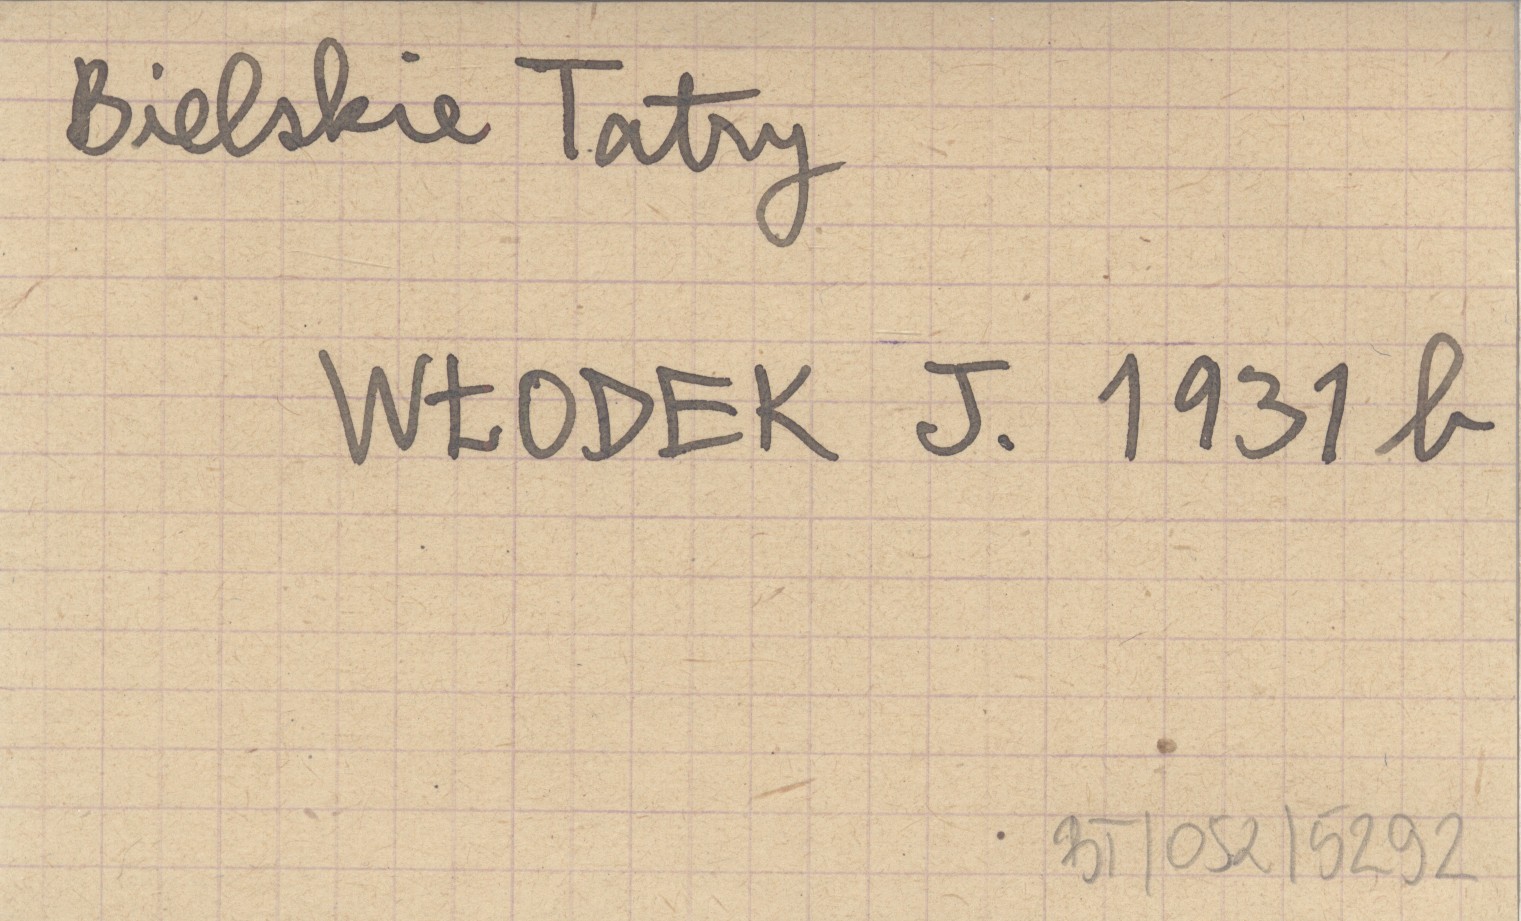 Bielskie Tatry
WŁODEK J. 1931 b
BT/052/5292